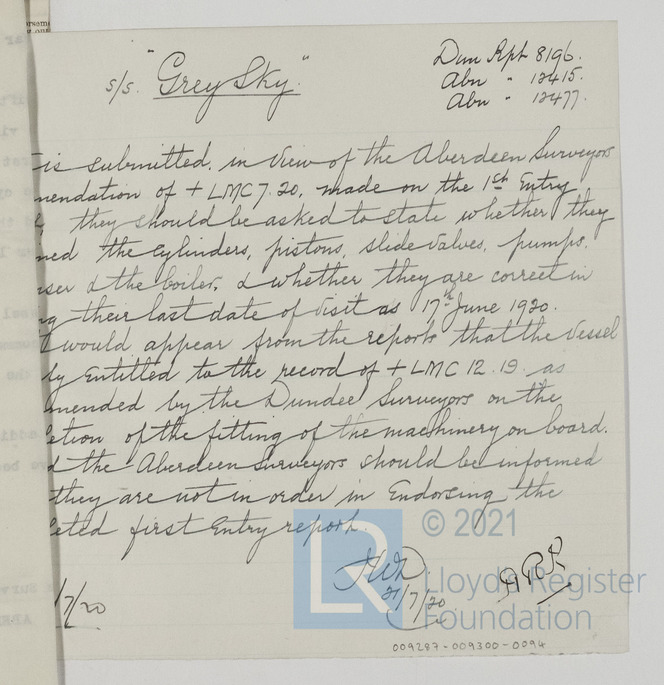 s/s. "Grey Sky."
Dun Rpt 8196.
Abn " 12415.
Abn " 12477.
is submitted, in view of the Aberdeen Surveyors
mendation of + LMC 7.20, made on the 1st Entry
they should be asked to state whether they
ned the cylinders, pistons, slide valves, pumps,
ser & the boiler, & whether they are correct in
g their last date of visit as 17th June 1920.
would appear from the reports that the vessel
ly entitled to the record of + LMC 12.19 as
mended by the Dundee Surveyors on the
etion of the fitting of the machinery on board.
d the Aberdeen Surveyors should be informed
they are not in order in Endorsing the
eted first Entry report.
21/7/20
/7/20
LR
© 2021
Lloyd's Register
Foundation
009287-009300-0094